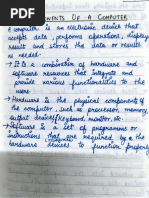 Components Of A Computer
A computer is an electronic device that
accepts data, performs operations, display
result and stores the data or results
as needed.
→ It is a combination of hardware and
software resources that integrate and
provide various functionalities to the
users.
→ Hardware is the physical components of
the computer, such as processor, memory,
output devices/Keyboard, monitor, etc.
→ Software is a set of programms or
instructions that required by the
hardware devices to function properly